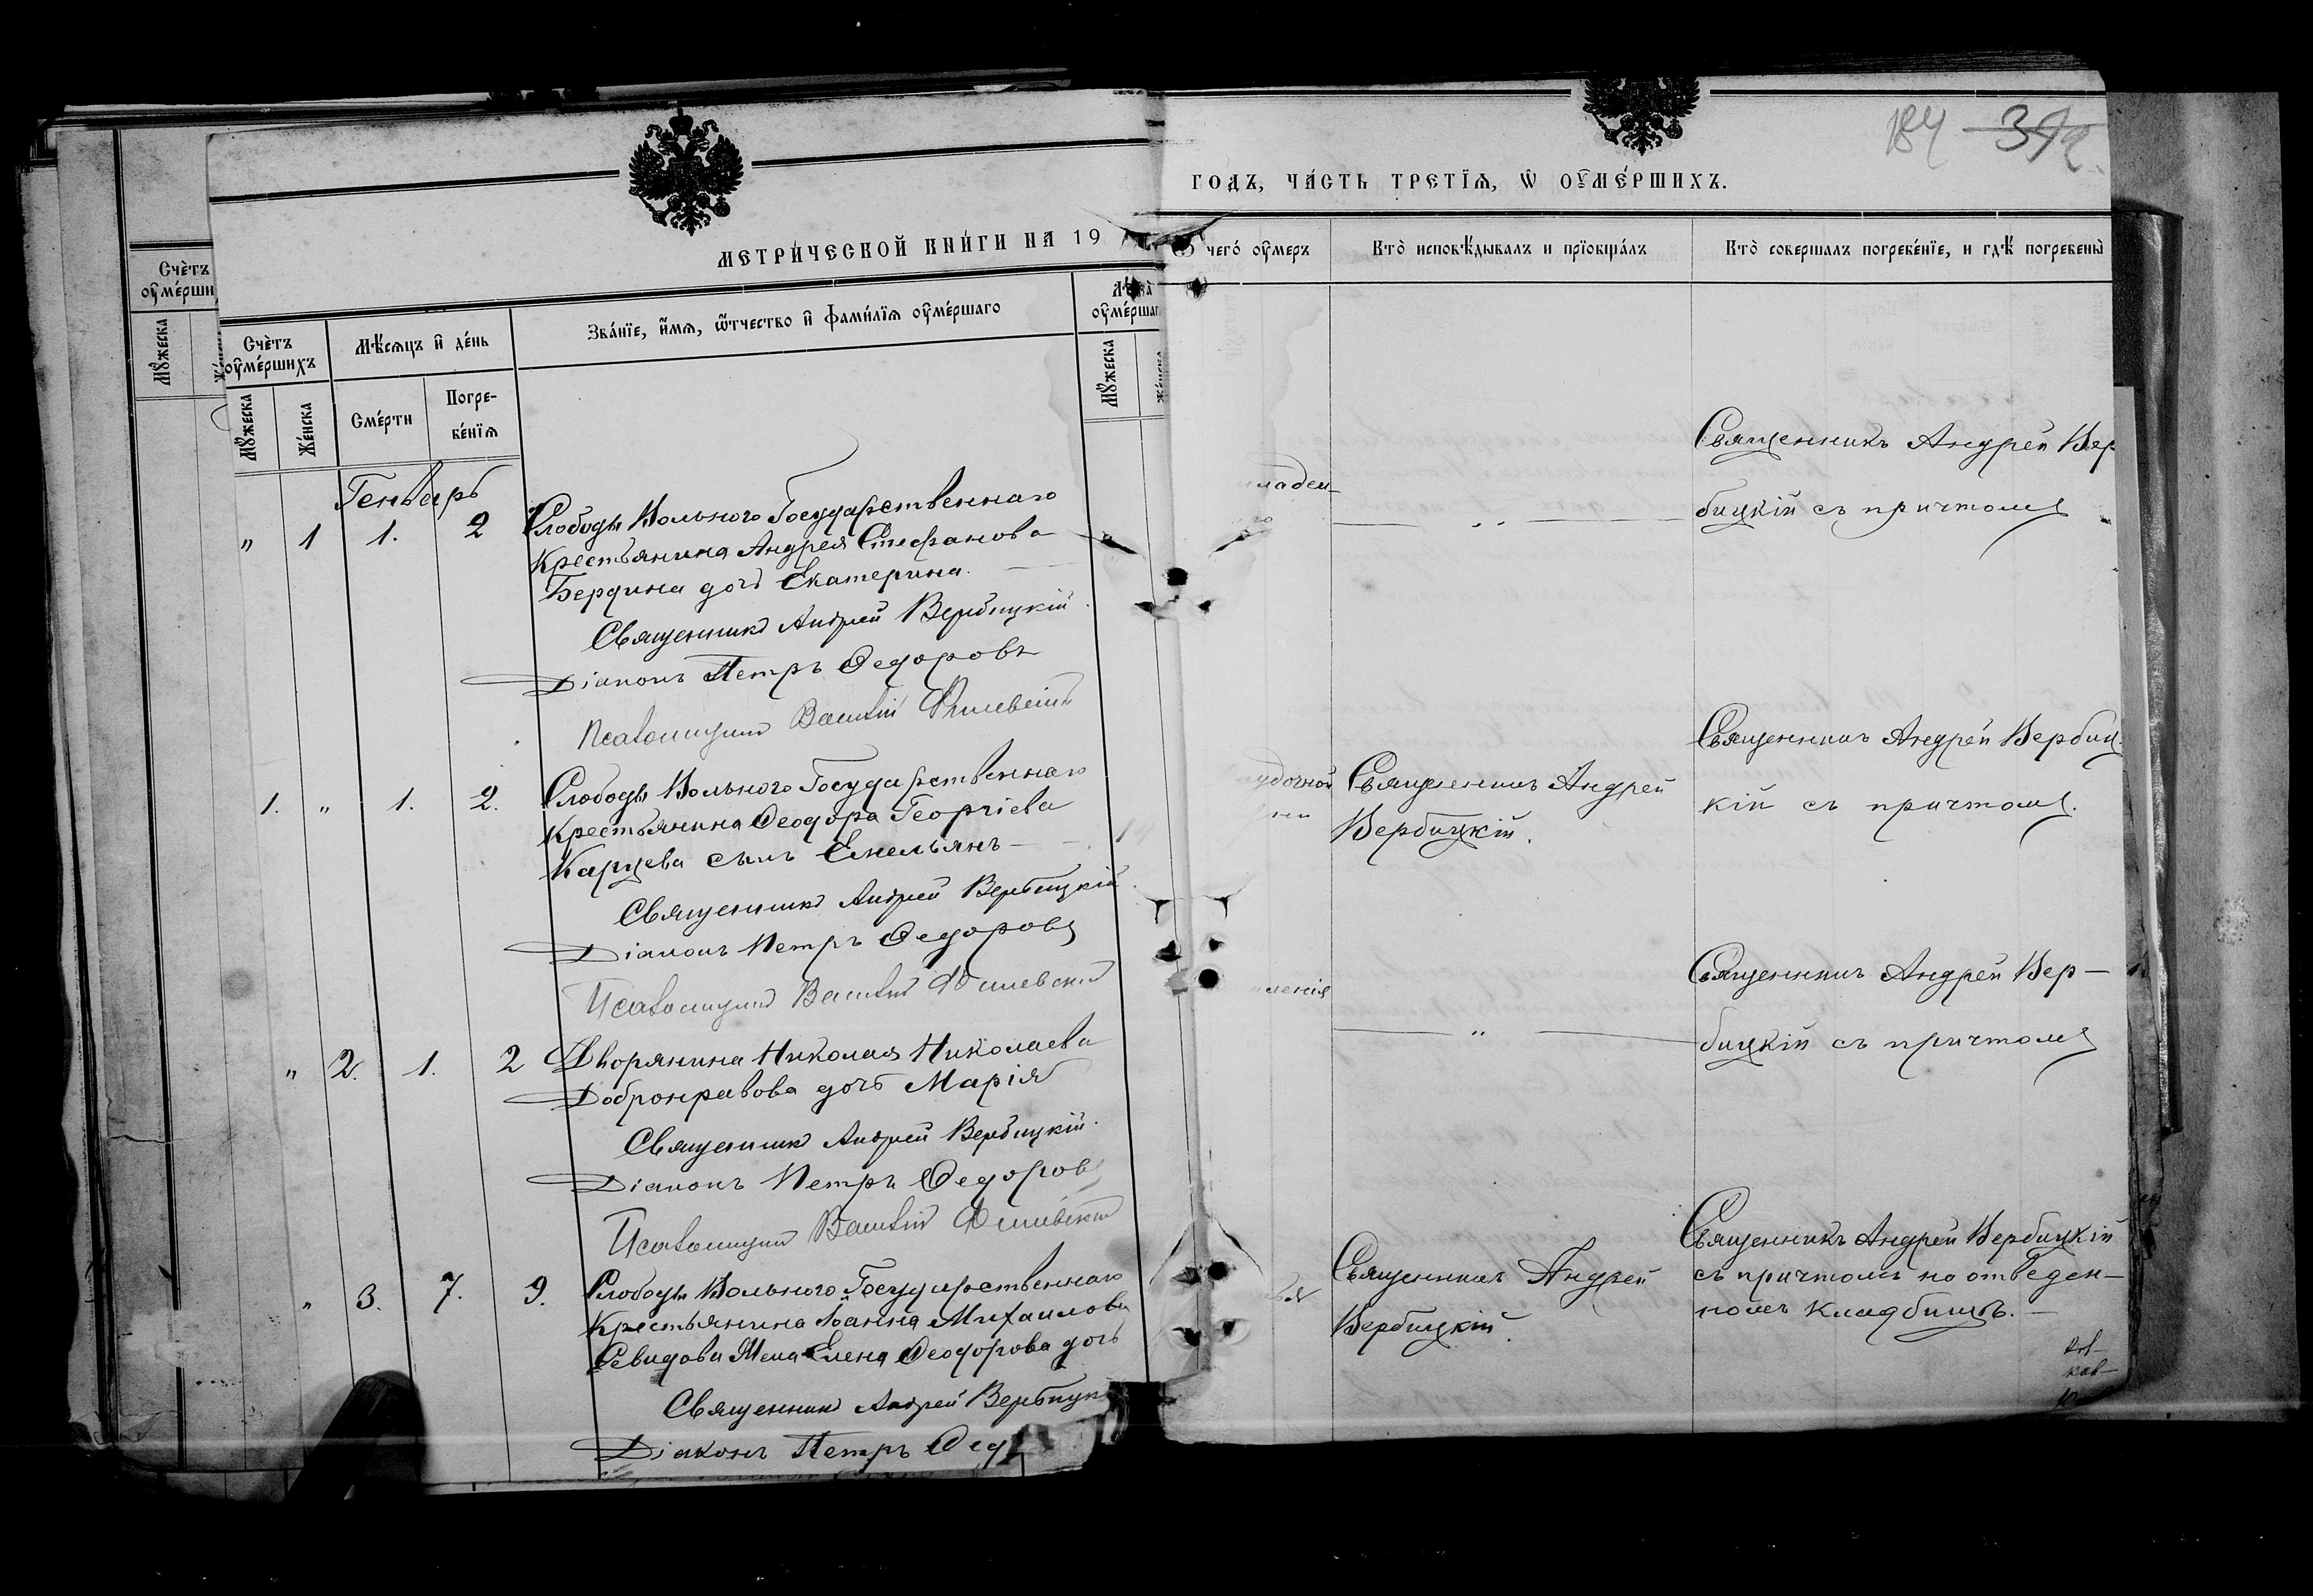 184 392.
МЕТРИ́ЧЕСКОЙ КНИ́ГИ НА 19
ГОДЪ, ЧА́СТЬ ТРЕТЇѦ, Ѡ ОУ҆МЕ́РШИХЪ.
Счѐтъ
оу҆ме́рши
Мꙋ́жеска
Счѐтъ
оу҆ме́ршихъ
Мꙋ́жеска
Же́нска
Мѣ́сяцъ и҆ де́нь
Сме́рти
Погре-
бе́нїѧ
Зва́нїе, и҆́мѧ, ѻ҆́тчество и҆ фами́лїѧ оу҆ме́ршаго
Лѣ́та
оу҆ме́ршаг
Мꙋ́жеска
чего́ оу҆́меръ
Кто̀ исповѣ́дывалъ и прїобща́лъ
Кто̀ совершалъ погребе́нїе, и гдѣ́ погребены̀
Генварь
„ 1 1. 2
Слободы Вольного Государственнаго
Крестьянина Андрея Стефанова
Бердина дочь Екатерина.
Священникъ Андрей Вербицкій.
Діаконъ Петръ Ѳедоровъ
Псаломщикъ Василій
ладен-
„
Священникъ Андрей Вер
бицкій съ причтомъ
1. „ 1. 2.
Слободы Вольного Государственнаго
Крестьянина Ѳеодора Георгіева
Карцева сынъ Емельянъ
Священникъ Андрей Вербицкій.
Діаконъ Петръ Ѳедоровъ
Псаломщикъ Василій
удочной
Священникъ Андрей
Вербицкій.
Священникъ Андрей Вербиц-
кій съ причтомъ.
„ 2. 1. 2
Дворянина Николая Николаева
Добронравова дочь Марія
Священникъ Андрей Вербицкій.
Діаконъ Петръ Ѳедоровъ
Псаломщикъ Василій
ленія
„
Священникъ Андрей Вер-
бицкій съ причтомъ
„ 3. 7. 9.
Слободы Вольного Государственнаго
Крестьянина Іоанна Михаилова
Елена Ѳеодорова дочь
Священникъ Андрей Вербицк
Діаконъ Петръ Ѳед
Священникъ Андрей
Вербицкій.
Священникъ Андрей Вербицкій
съ причтомъ на отведен-
номъ кладбищѣ.